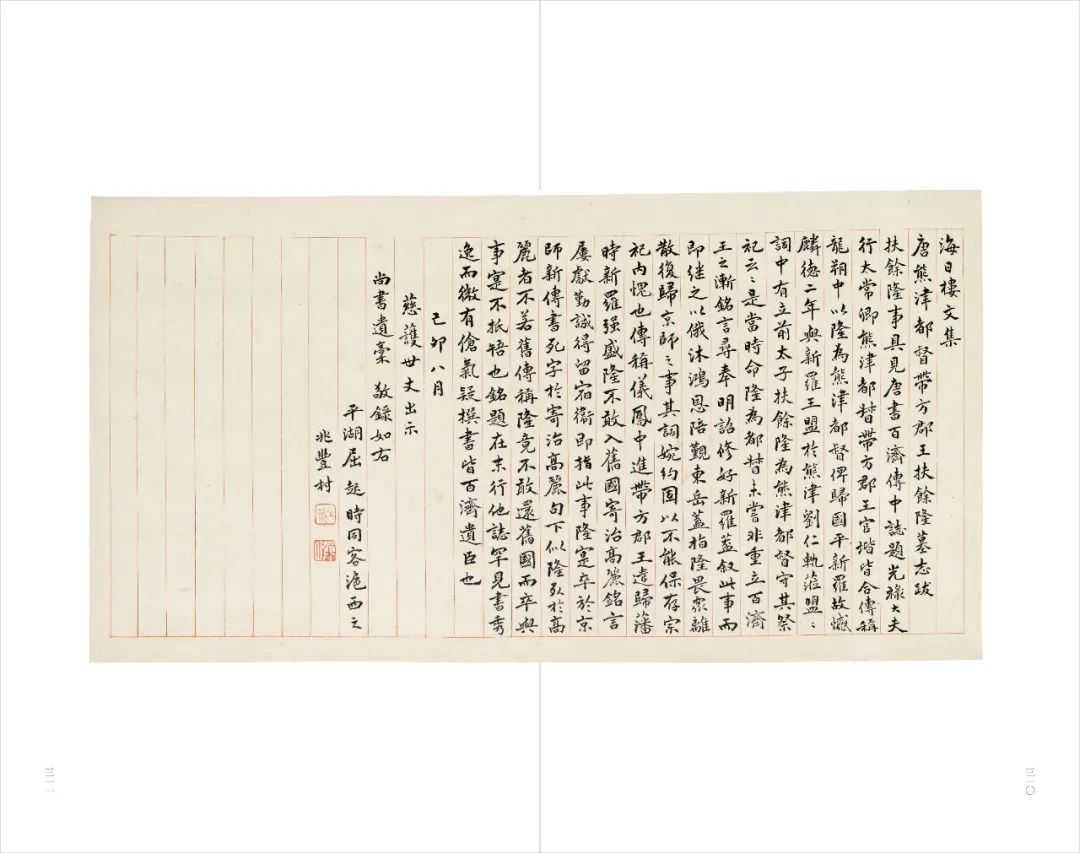 海日樓文集
唐熊津都督帶方郡王扶餘隆墓志跋
扶餘隆事具見唐書百濟傳中誌題光祿大夫
行太常卿熊津都督帶方郡王官堦皆合傳稱
龍朔中以隆為熊津都督俾歸國平新羅故憾
麟德二年與新羅王盟於熊津劉仁軌蒞盟〻
詞中有立前太子扶餘隆為熊津都督守其祭
祀云〻是當時命隆為都督未嘗非重立百濟
王之漸銘言尋奉明詔修好新羅蓋叙此事而
即继之以俄沐鴻恩陪觀東岳蓋指隆畏衆離
散復歸京師〻之事其詞婉約固以不能保存宗
祀内愧也傳稱儀鳳中進帶方郡王遣歸藩
時新羅强盛隆不敢入舊國寄治高麗銘言
屢獻勤誠得留宿衛即指此事隆寔卒於京
師新傳書死字於寄治高麗句下似隆死於高
麗者不若舊傳稱隆竟不敢還舊國而卒與
事寔不抵牾也銘題在末行他誌罕見書秀
逸而微有傖氣疑撰書皆百濟遺臣也
己卯八月
慈護世丈出示
尚書遺稾 敬錄如右
平湖屈彊時同客滬西之
兆豐村
四〇
四一